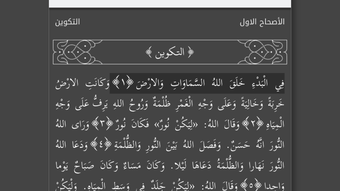 الأصحاح الاول
التكوين
﴿ التكوين ﴾
فِي الْبَدْءِ خَلَقَ اللهُ السَّمَاوَاتِ وَالارْضَ ﴿١﴾ وَكَانَتِ الارْضُ
خَرِبَةً وَخَالِيَةً وَعَلَى وَجْهِ الْغَمْرِ ظُلْمَةٌ وَرُوحُ اللهِ يَرِفُّ عَلَى وَجْهِ
الْمِيَاهِ ﴿٢﴾ وَقَالَ اللهُ: «لِيَكُنْ نُورٌ» فَكَانَ نُورٌ ﴿٣﴾ وَرَاى اللهُ
النُّورَ انَّهُ حَسَنٌ. وَفَصَلَ اللهُ بَيْنَ النُّورِ وَالظُّلْمَةِ ﴿٤﴾ وَدَعَا اللهُ
النُّورَ نَهَارا وَالظُّلْمَةُ دَعَاهَا لَيْلا. وَكَانَ مَسَاءٌ وَكَانَ صَبَاحٌ يَوْما
وَاحِدا ﴿٥﴾ وَقَالَ اللهُ: «لِيَكُنْ جَلَدٌ فِي وَسَطِ الْمِيَاهِ. وَلْيَكُنْ